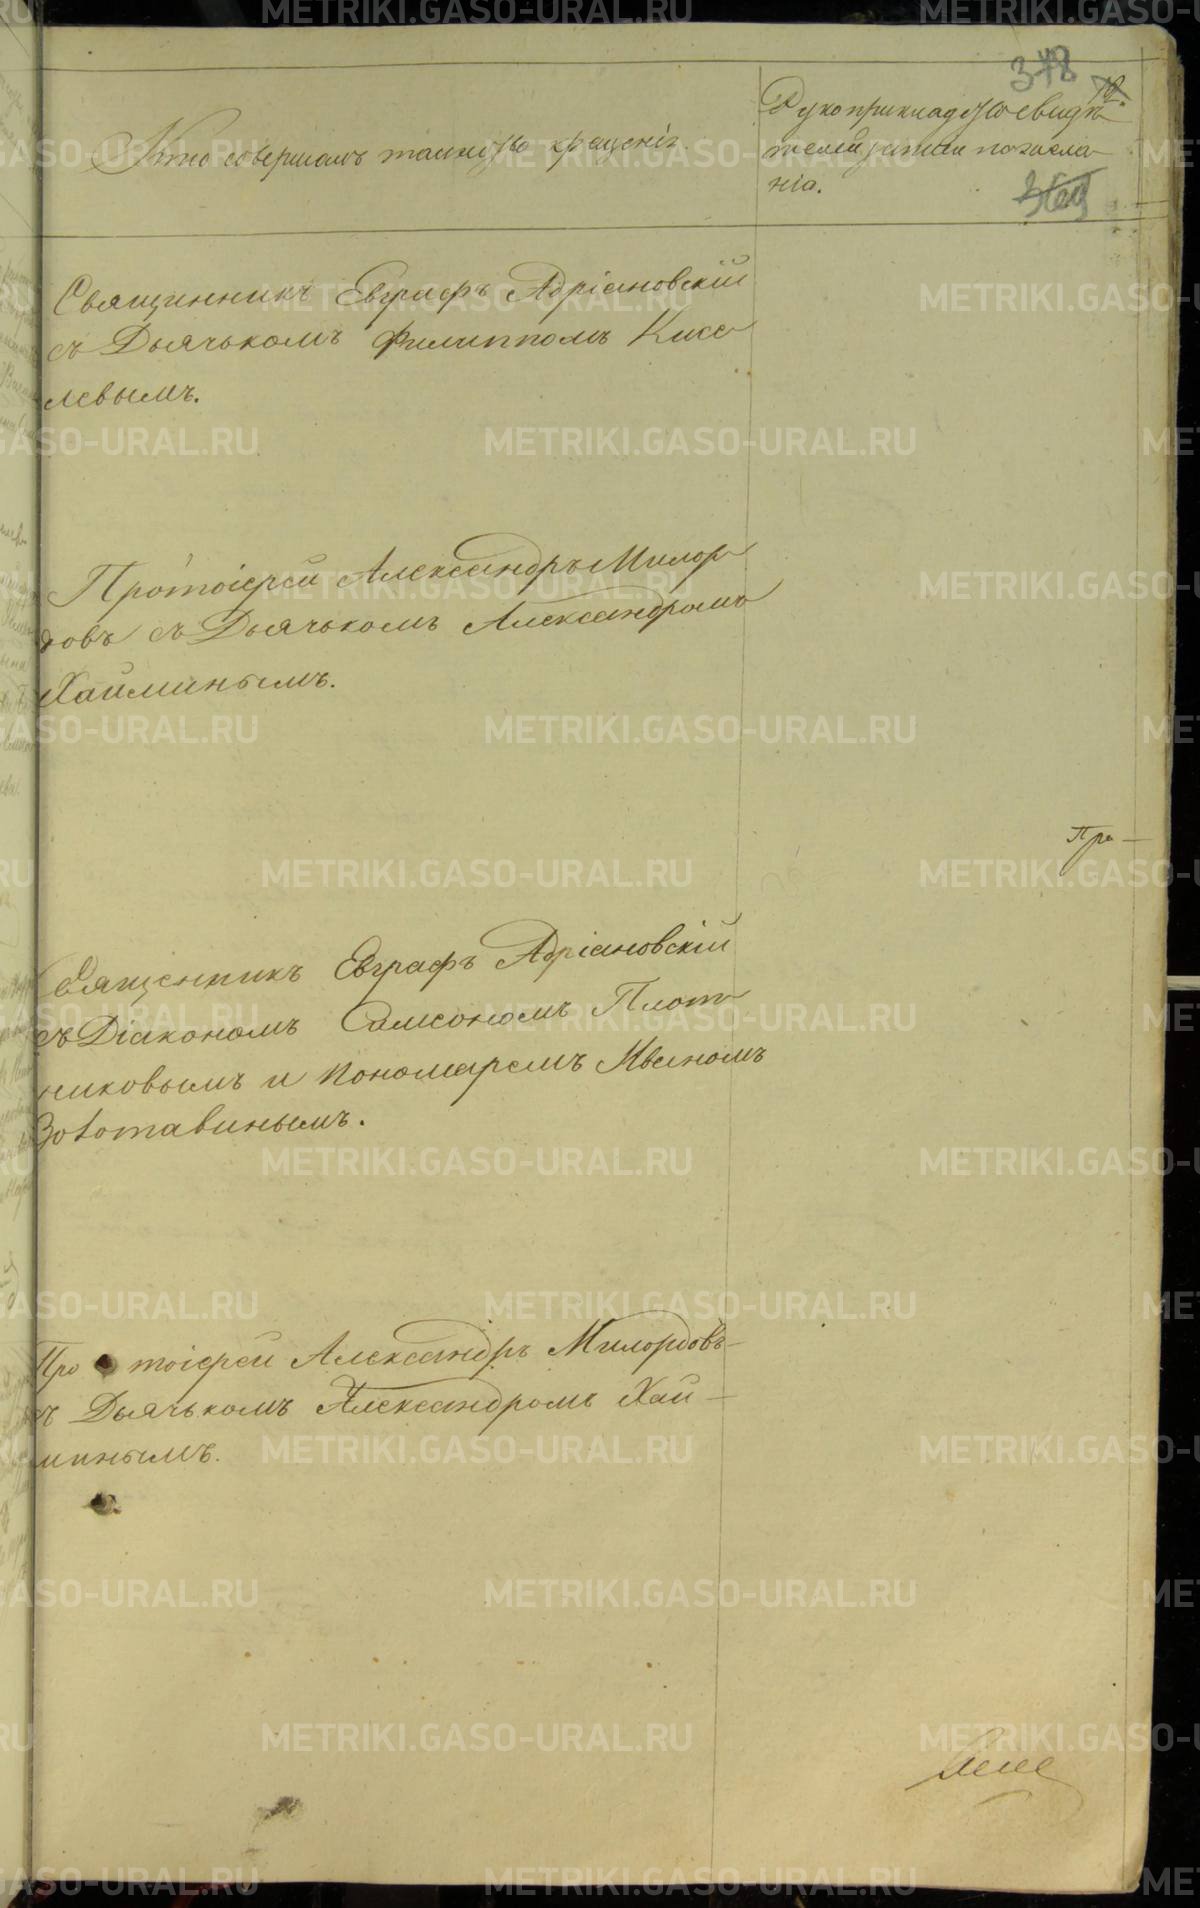 378
Кто совершалъ таинство крещенія.
Рукоприкладство свидѣ-
телей записи по желa-
нію.
Священникъ Евграфъ Адріановскій
съ Дьячькомъ Филиппомъ Кисе-
левымъ.
Протоіерей Александръ Милор-
довъ съ Дьячькомъ Александромъ
Хайминымъ.
Пра-
Священникъ Евграфъ Адріановскій
съ Діакономъ Самсономъ Плот-
никовымъ и пономаремъ Иваномъ
Золотавинымъ.
Протоіерей Александръ Милордовъ
съ Дьячькомъ Александромъ Хай-
минымъ.
METRIKI.GASO-URAL.RU